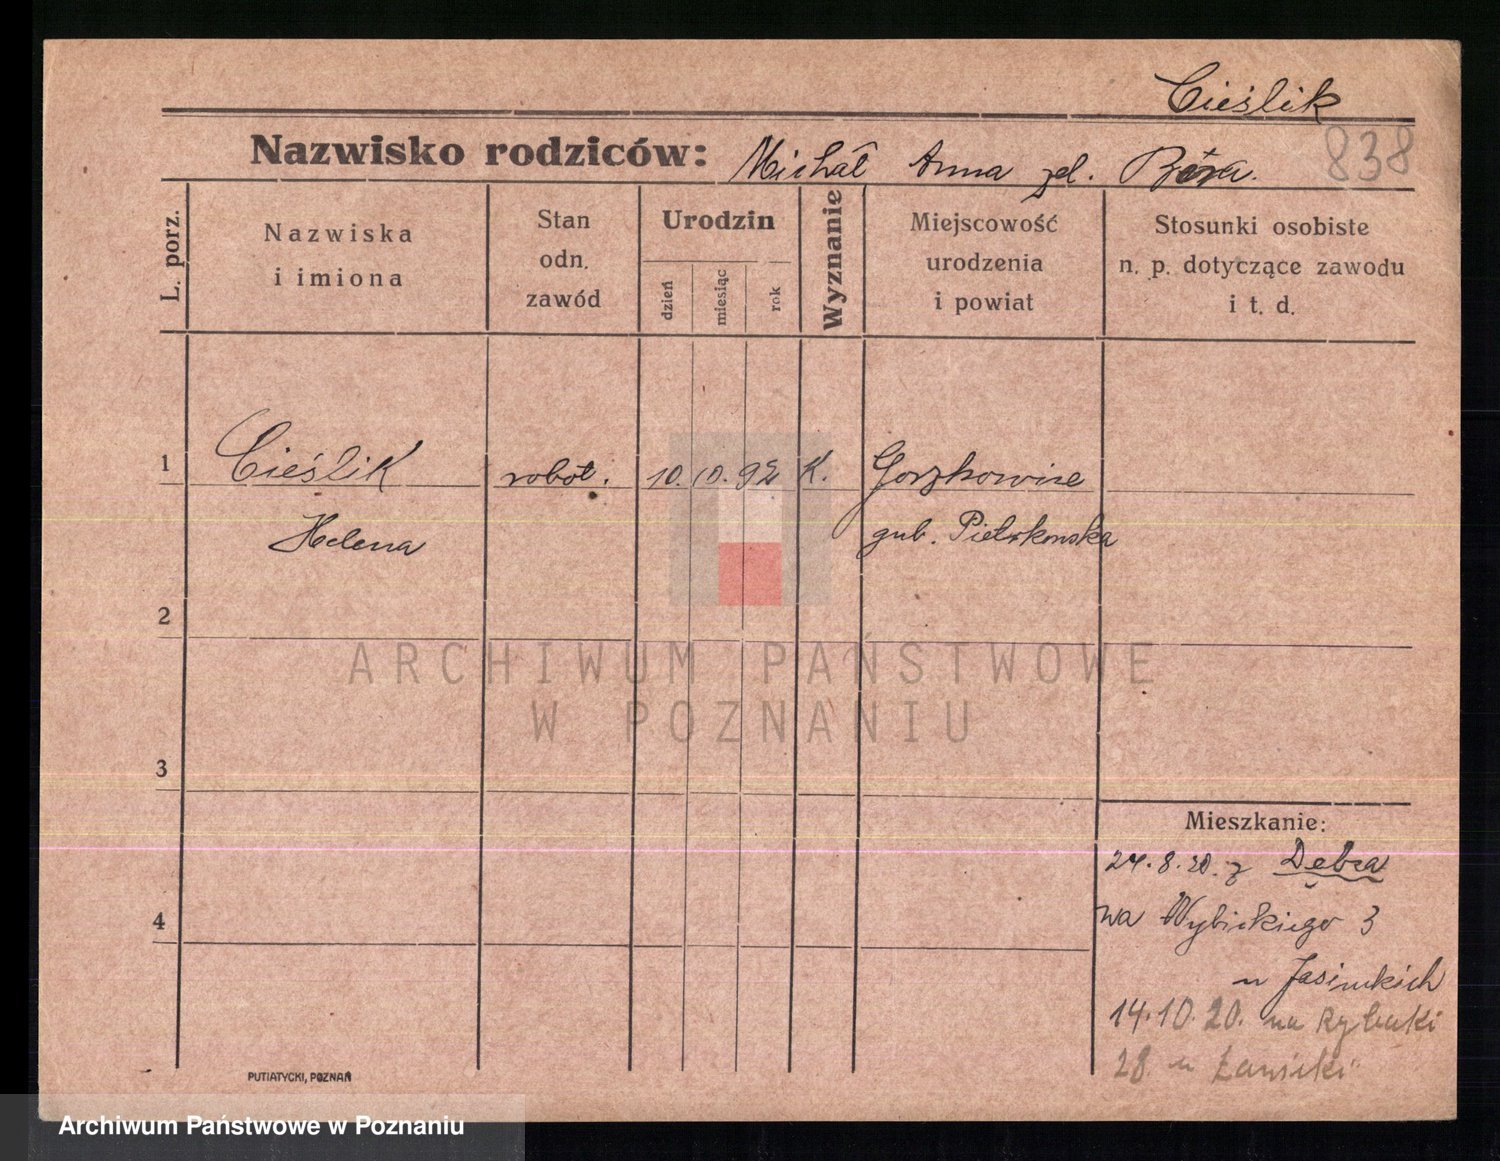 Cieślik
838
Nazwisko rodziców: Michał Anna
L. porz.
Nazwiska
i imiona
Stan
odn.
zawód
Urodzin
dzień
miesiąc
rok
Wyznanie
Miejscowość
urodzenia
i powiat
Stosunki osobiste
n. p. dotyczące zawodu
i t. d.
1
Cieślik
Helena
robot.
10. 10. 92
K.
Gorzkowice
gub. Piotrkowska
2
ARCHIWUM PAŃSTWOWE
W POZNANIU
3
Mieszkanie:
24.8.20. z Dębca
4
na Wybickiego 3
14.10.20. na Rybaki
28
PUTIATYCKI, POZNAŃ
Archiwum Państwowe w Poznaniu